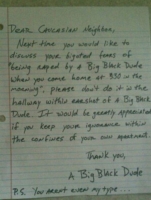 Dear Caucasian Neighbor,
Next time you would like to
discuss your bigoted fears of
"being raped by a Big Black Dude
when you come home at 3:30 in the
morning", please don't do it in the
hallway within earshot of a Big Black
Dude. It would be greatly appreciated
if you keep your ignorance within
the confines of your own apartment.
Thank you,
A Big Black Dude
P.S. You aren't even my type...